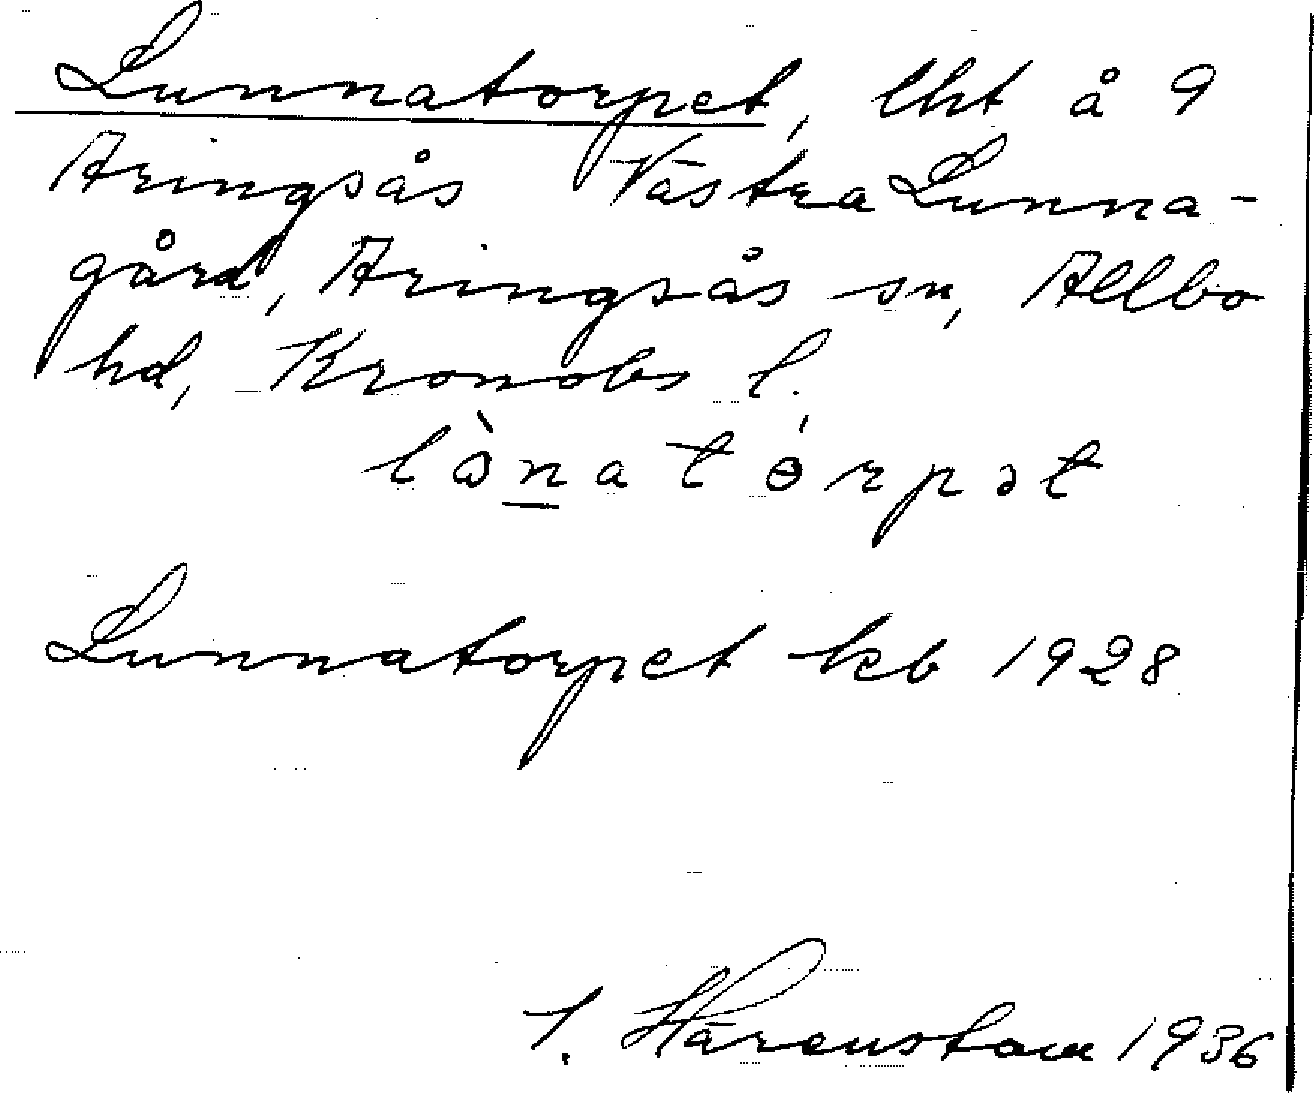 Lunnatorpet, lht å 9
Aringsås Västra Lunna-
gård, Aringsås sn, Allbo
hd, Kronobs l.
lònatórpət
Lunnatorpet kb 1928
Härenstam 1936